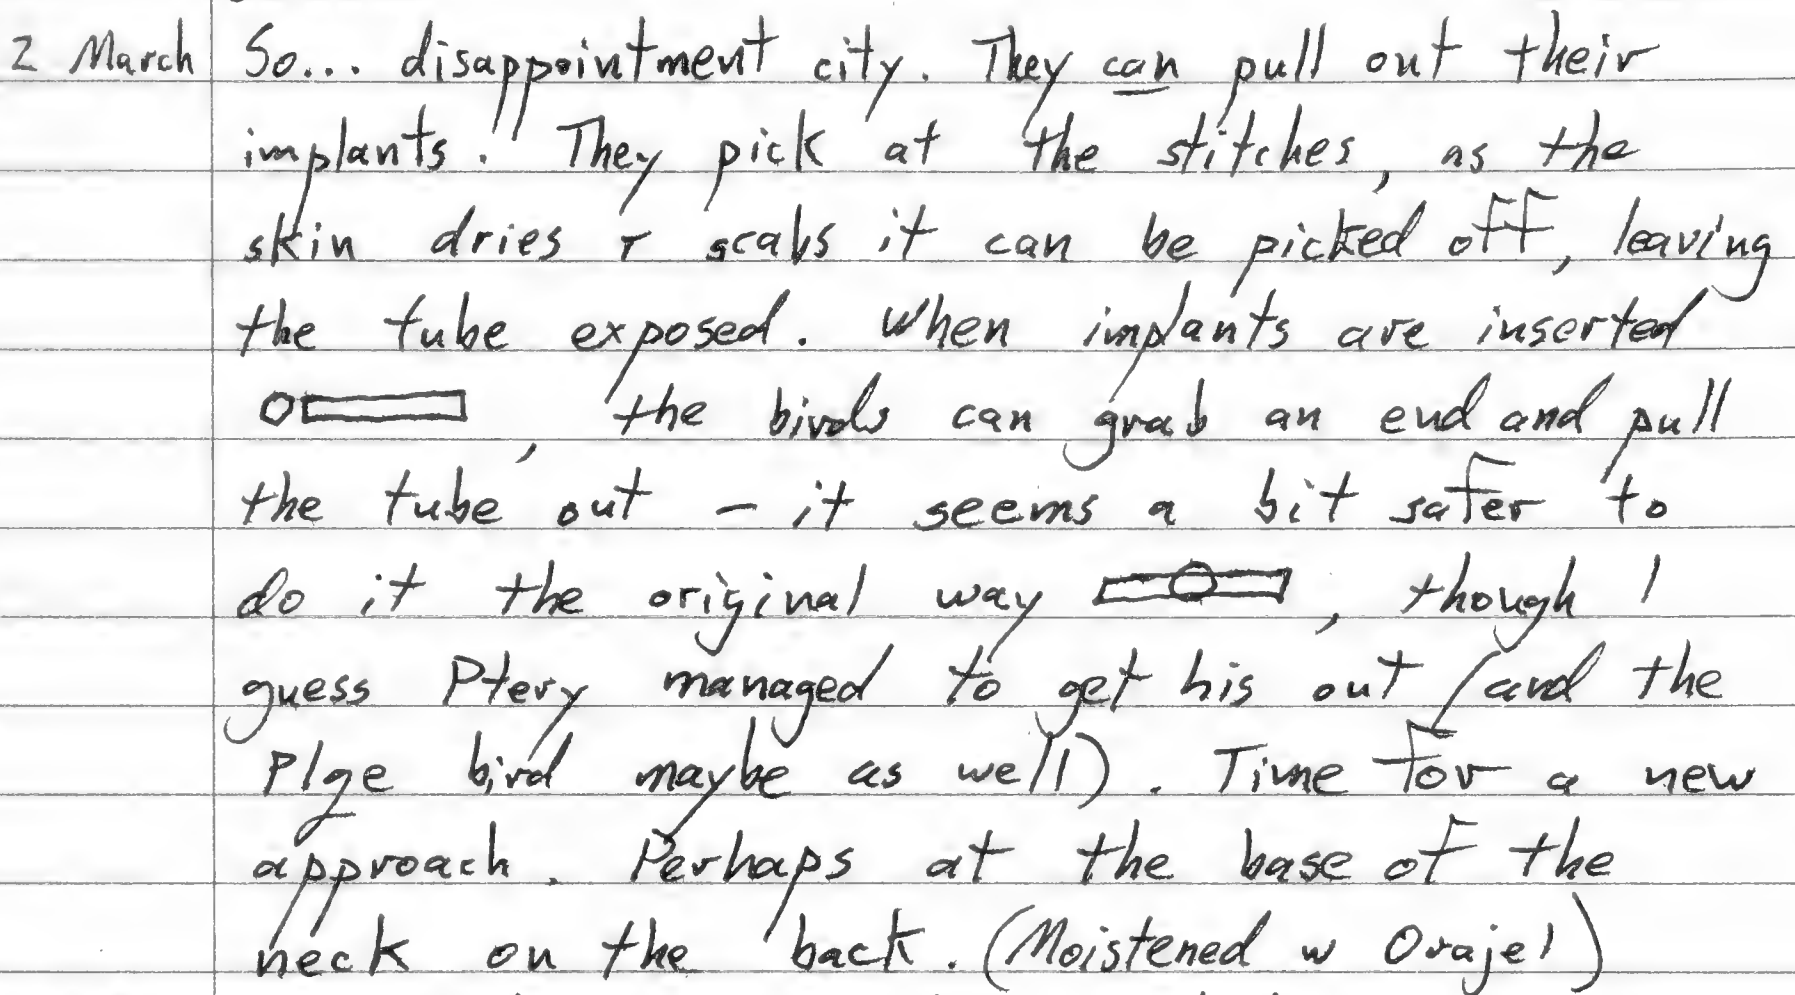 2 March So... disappointment city. They can pull out their
implants. They pick at the stitches, as the
skin dries + scabs it can be picked off, leaving
the tube exposed. When implants are inserted
, the birds can grab an end and pull
the tube out - it seems a bit safer to
do it the original way , though I
guess Ptery managed to get his out (and the
Plge bird maybe as well). Time for a new
approach. Perhaps at the base of the
neck on the back. (Moistened w Orajel)